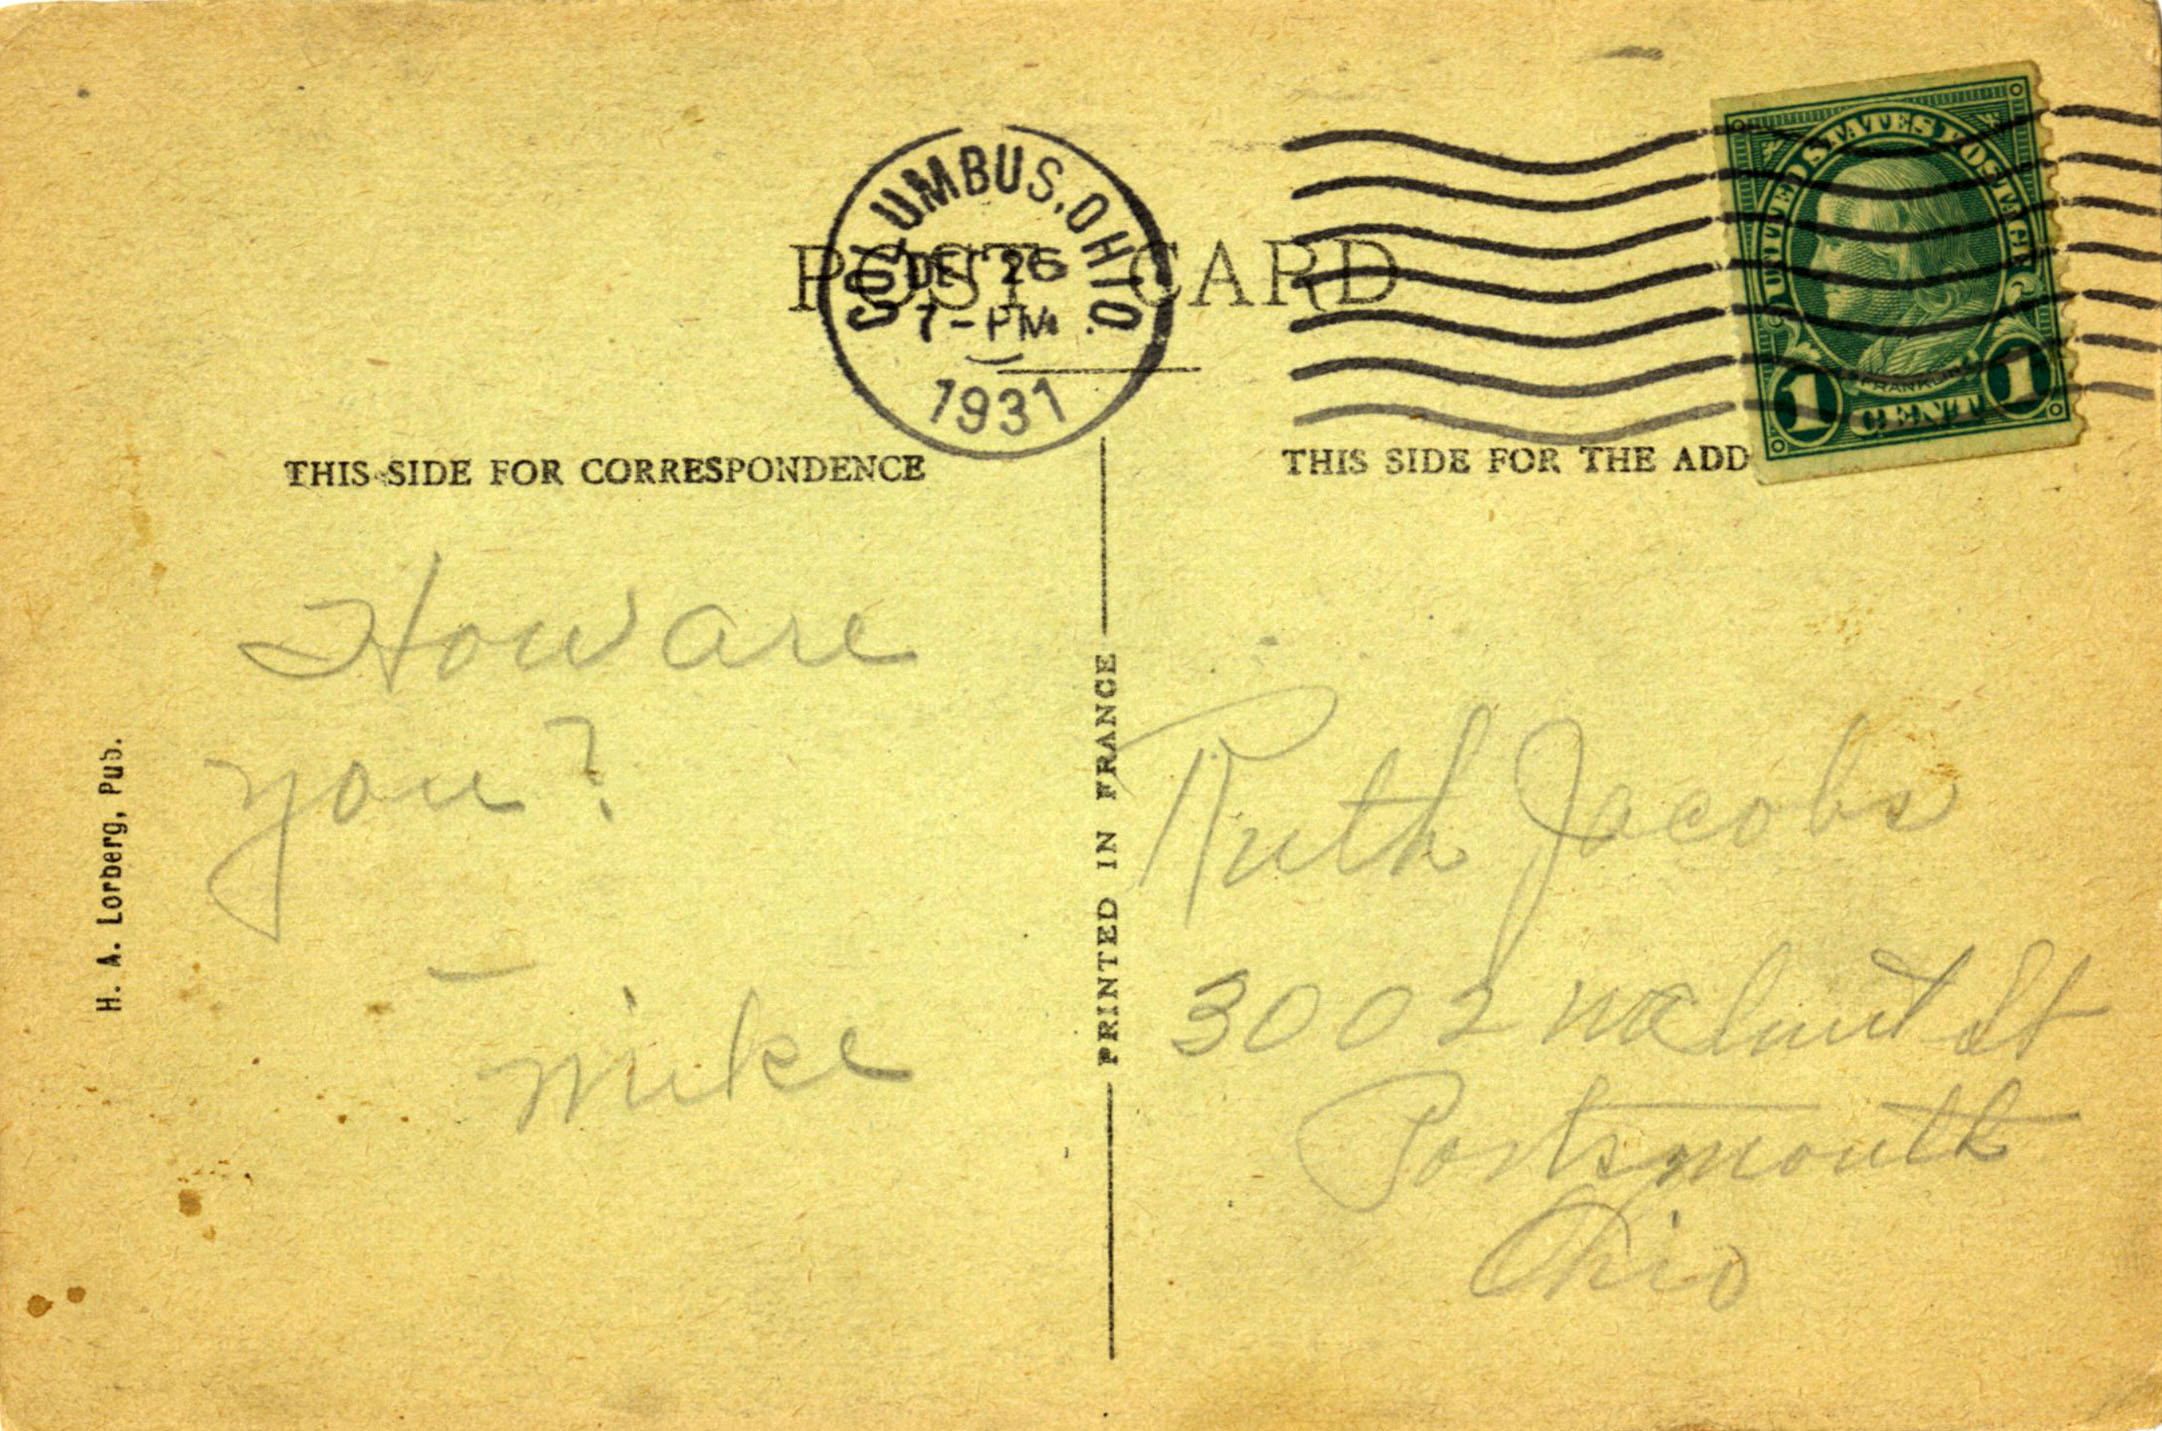 COLUMBUS, OHIO
26
7-PM
1931
UNITED STATES POSTAGE
FRANKLIN
1 CENT 1
POST CARD
THIS SIDE FOR CORRESPONDENCE
THIS SIDE FOR THE ADD
How are
you?
— Mike
H. A. Lorberg, Pub.
PRINTED IN FRANCE
Ruth Jacobs
3002 Walnut St
Portsmouth
Ohio